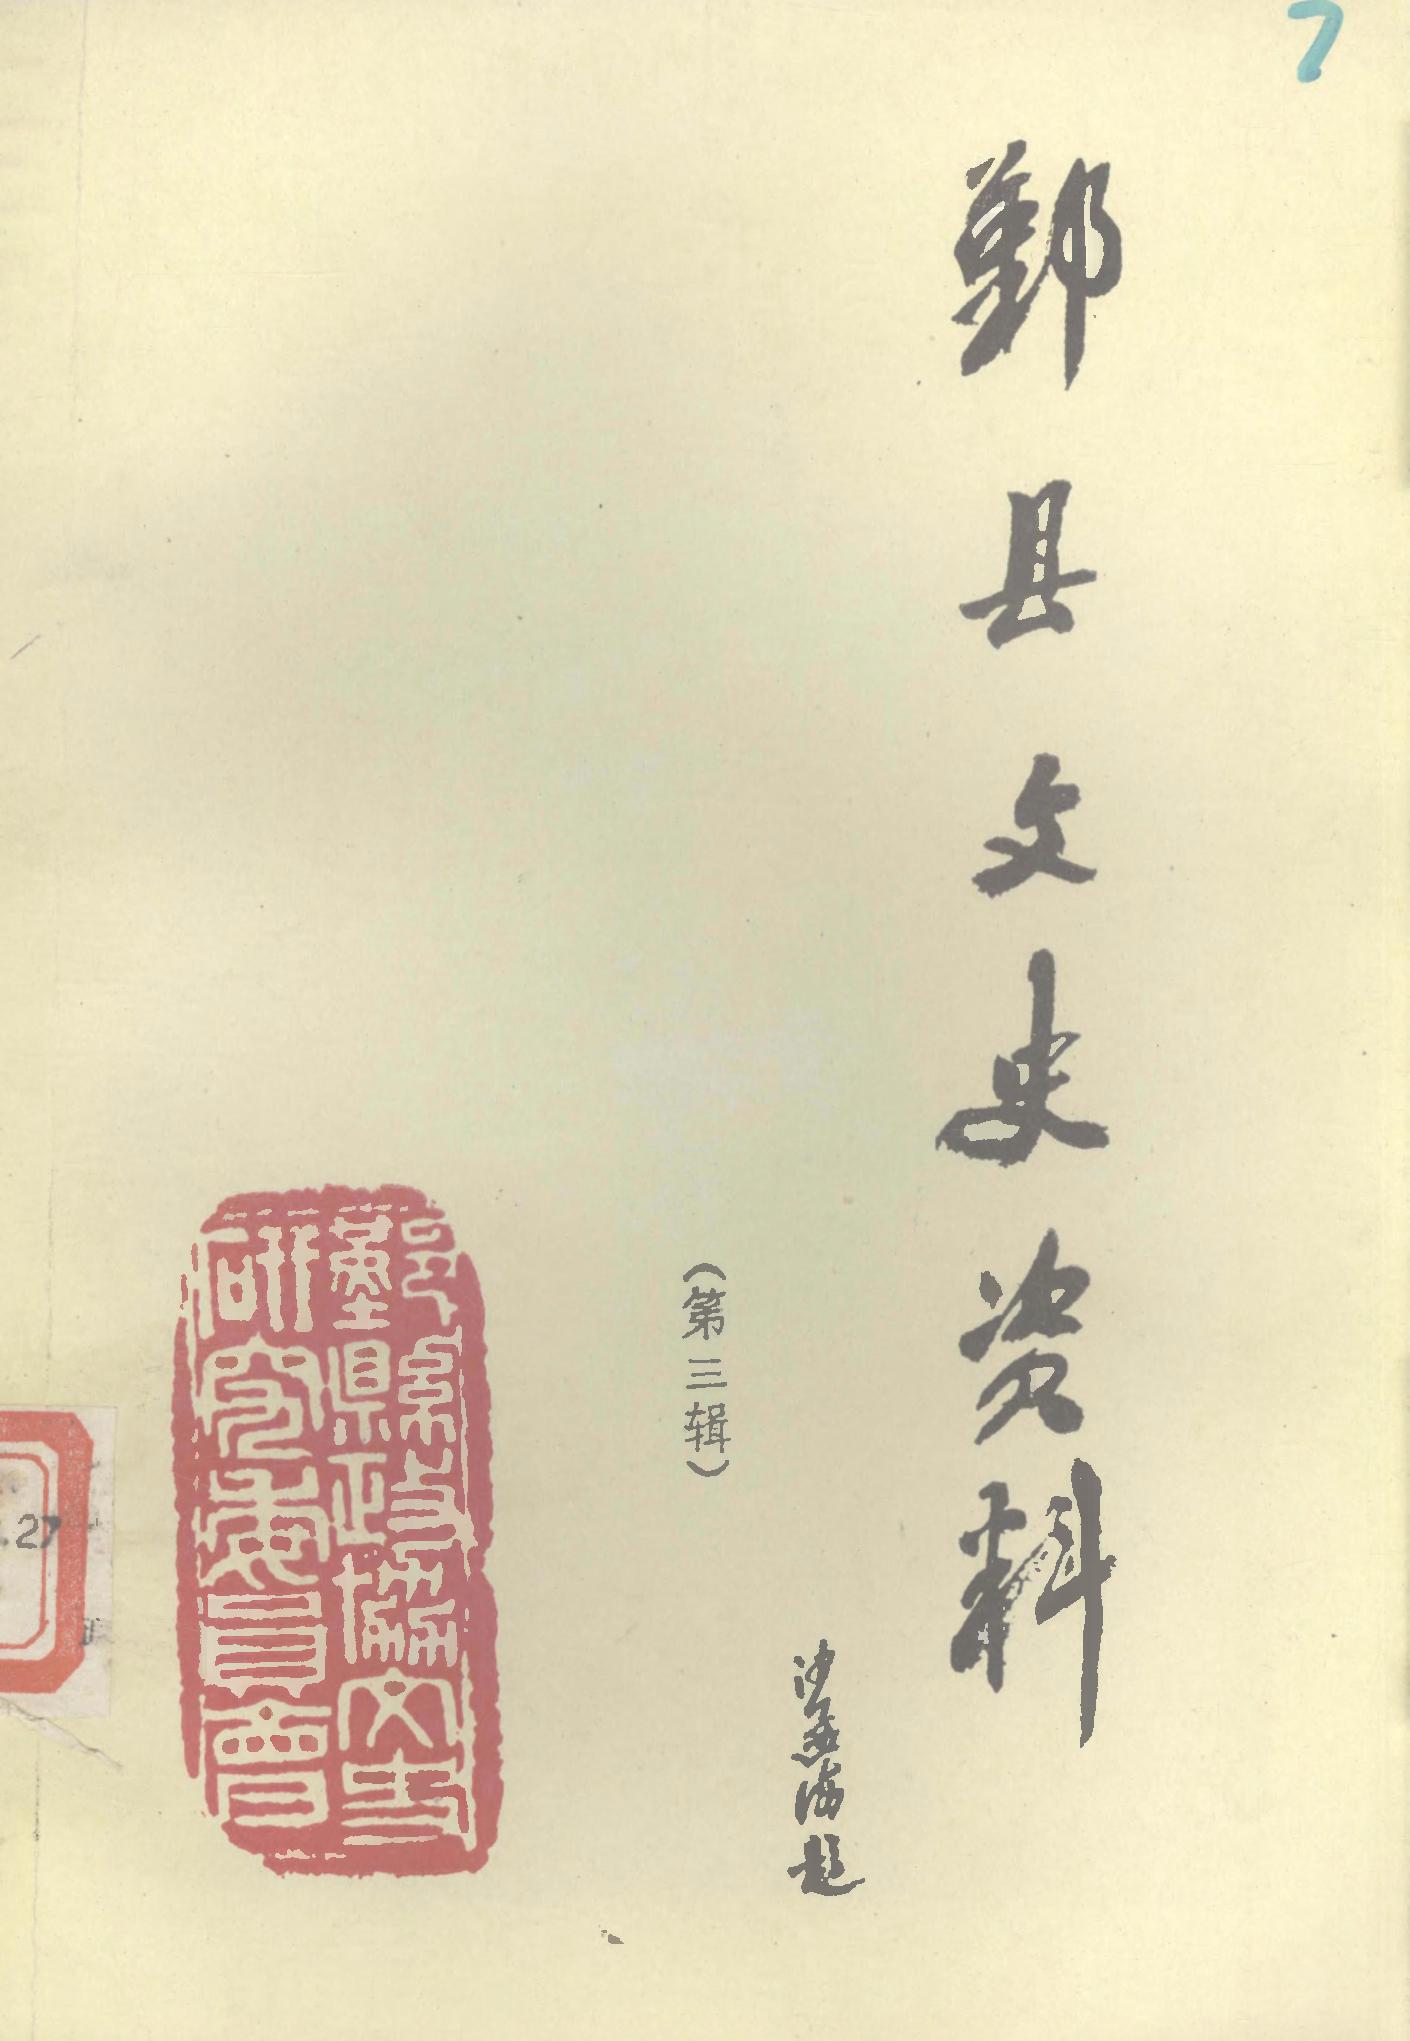 7
鄞县文史资料
(第三辑)
沙孟海题
鄞縣政協文史
研究委員會
.27